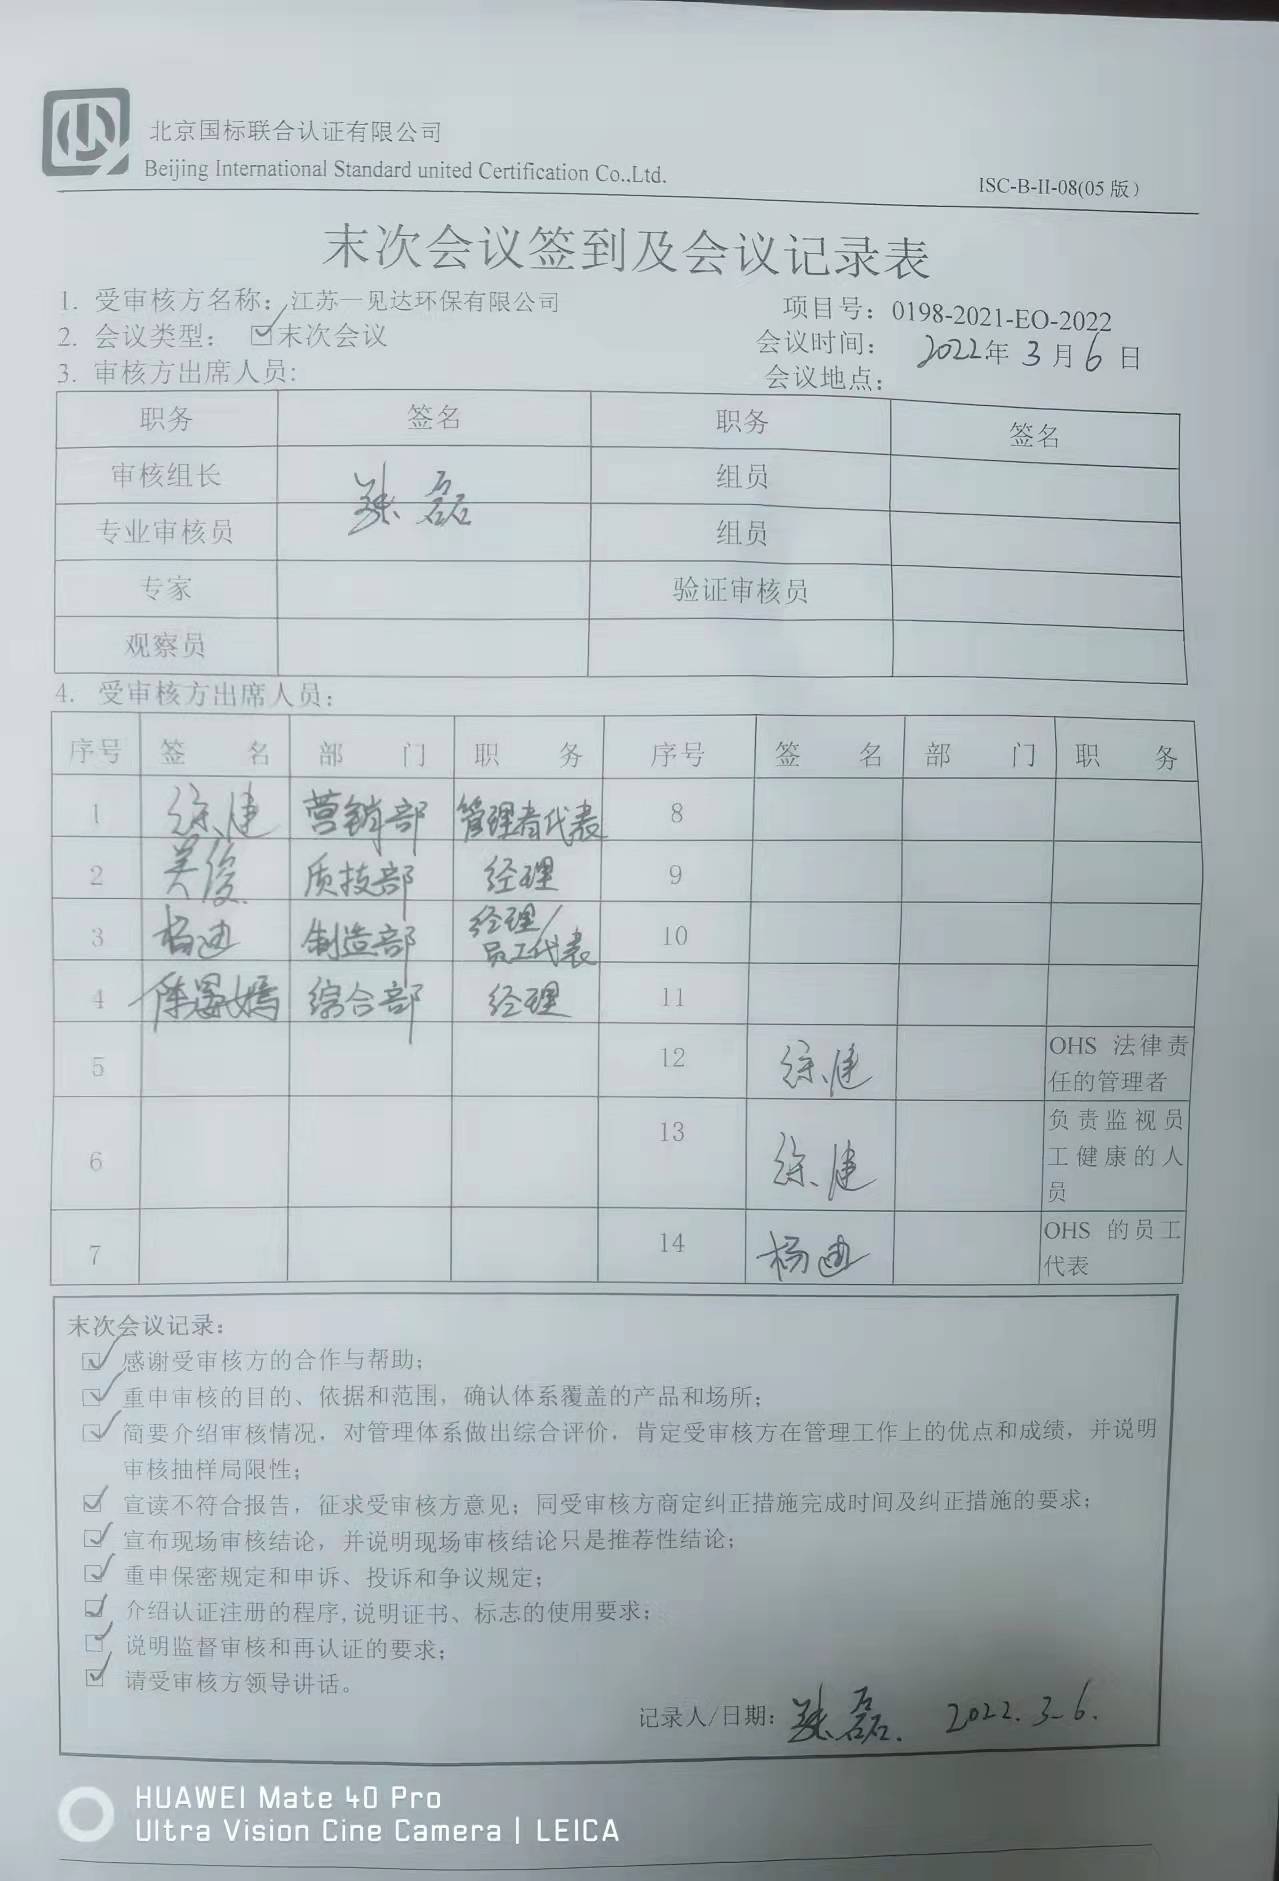 北京国标联合认证有限公司
Beijing International Standard united Certification Co.,Ltd.
ISC-B-II-08(05 版)
末次会议签到及会议记录表
1. 受审核方名称: 江苏一见达环保有限公司 项目号: 0198-2021-EO-2022
2. 会议类型: ☑末次会议 会议时间: 2022年 3 月 6 日
3. 审核方出席人员: 会议地点:
职务 签名 职务 签名
审核组长 组员
磊
专业审核员 组员
专家 验证审核员
观察员
4. 受审核方出席人员:
序号 签 名 部 门 职 务 序号 签 名 部 门 职 务
1 徐健 营销部 管理者代表 8
2 俊 质技部 经理 9
3 杨迪 制造部 经理/员工代表 10
4 陈 嫣 综合部 经理 11
5 12 徐健 OHS 法律责
任的管理者
6 13 徐健 负责监视员
工健康的人
员
7 14 杨迪 OHS 的员工
代表
末次会议记录:
☑ 感谢受审核方的合作与帮助;
☑ 重申审核的目的、依据和范围，确认体系覆盖的产品和场所;
☑ 简要介绍审核情况，对管理体系做出综合评价，肯定受审核方在管理工作上的优点和成绩，并说明
审核抽样局限性;
☑ 宣读不符合报告，征求受审核方意见; 同受审核方商定纠正措施完成时间及纠正措施的要求;
☑ 宣布现场审核结论，并说明现场审核结论只是推荐性结论;
☑ 重申保密规定和申诉、投诉和争议规定;
☑ 介绍认证注册的程序,说明证书、标志的使用要求;
☑ 说明监督审核和再认证的要求;
☑ 请受审核方领导讲话。
记录人/日期: 磊. 2022.3.6.
HUAWEI Mate 40 Pro
Ultra Vision Cine Camera | LEICA